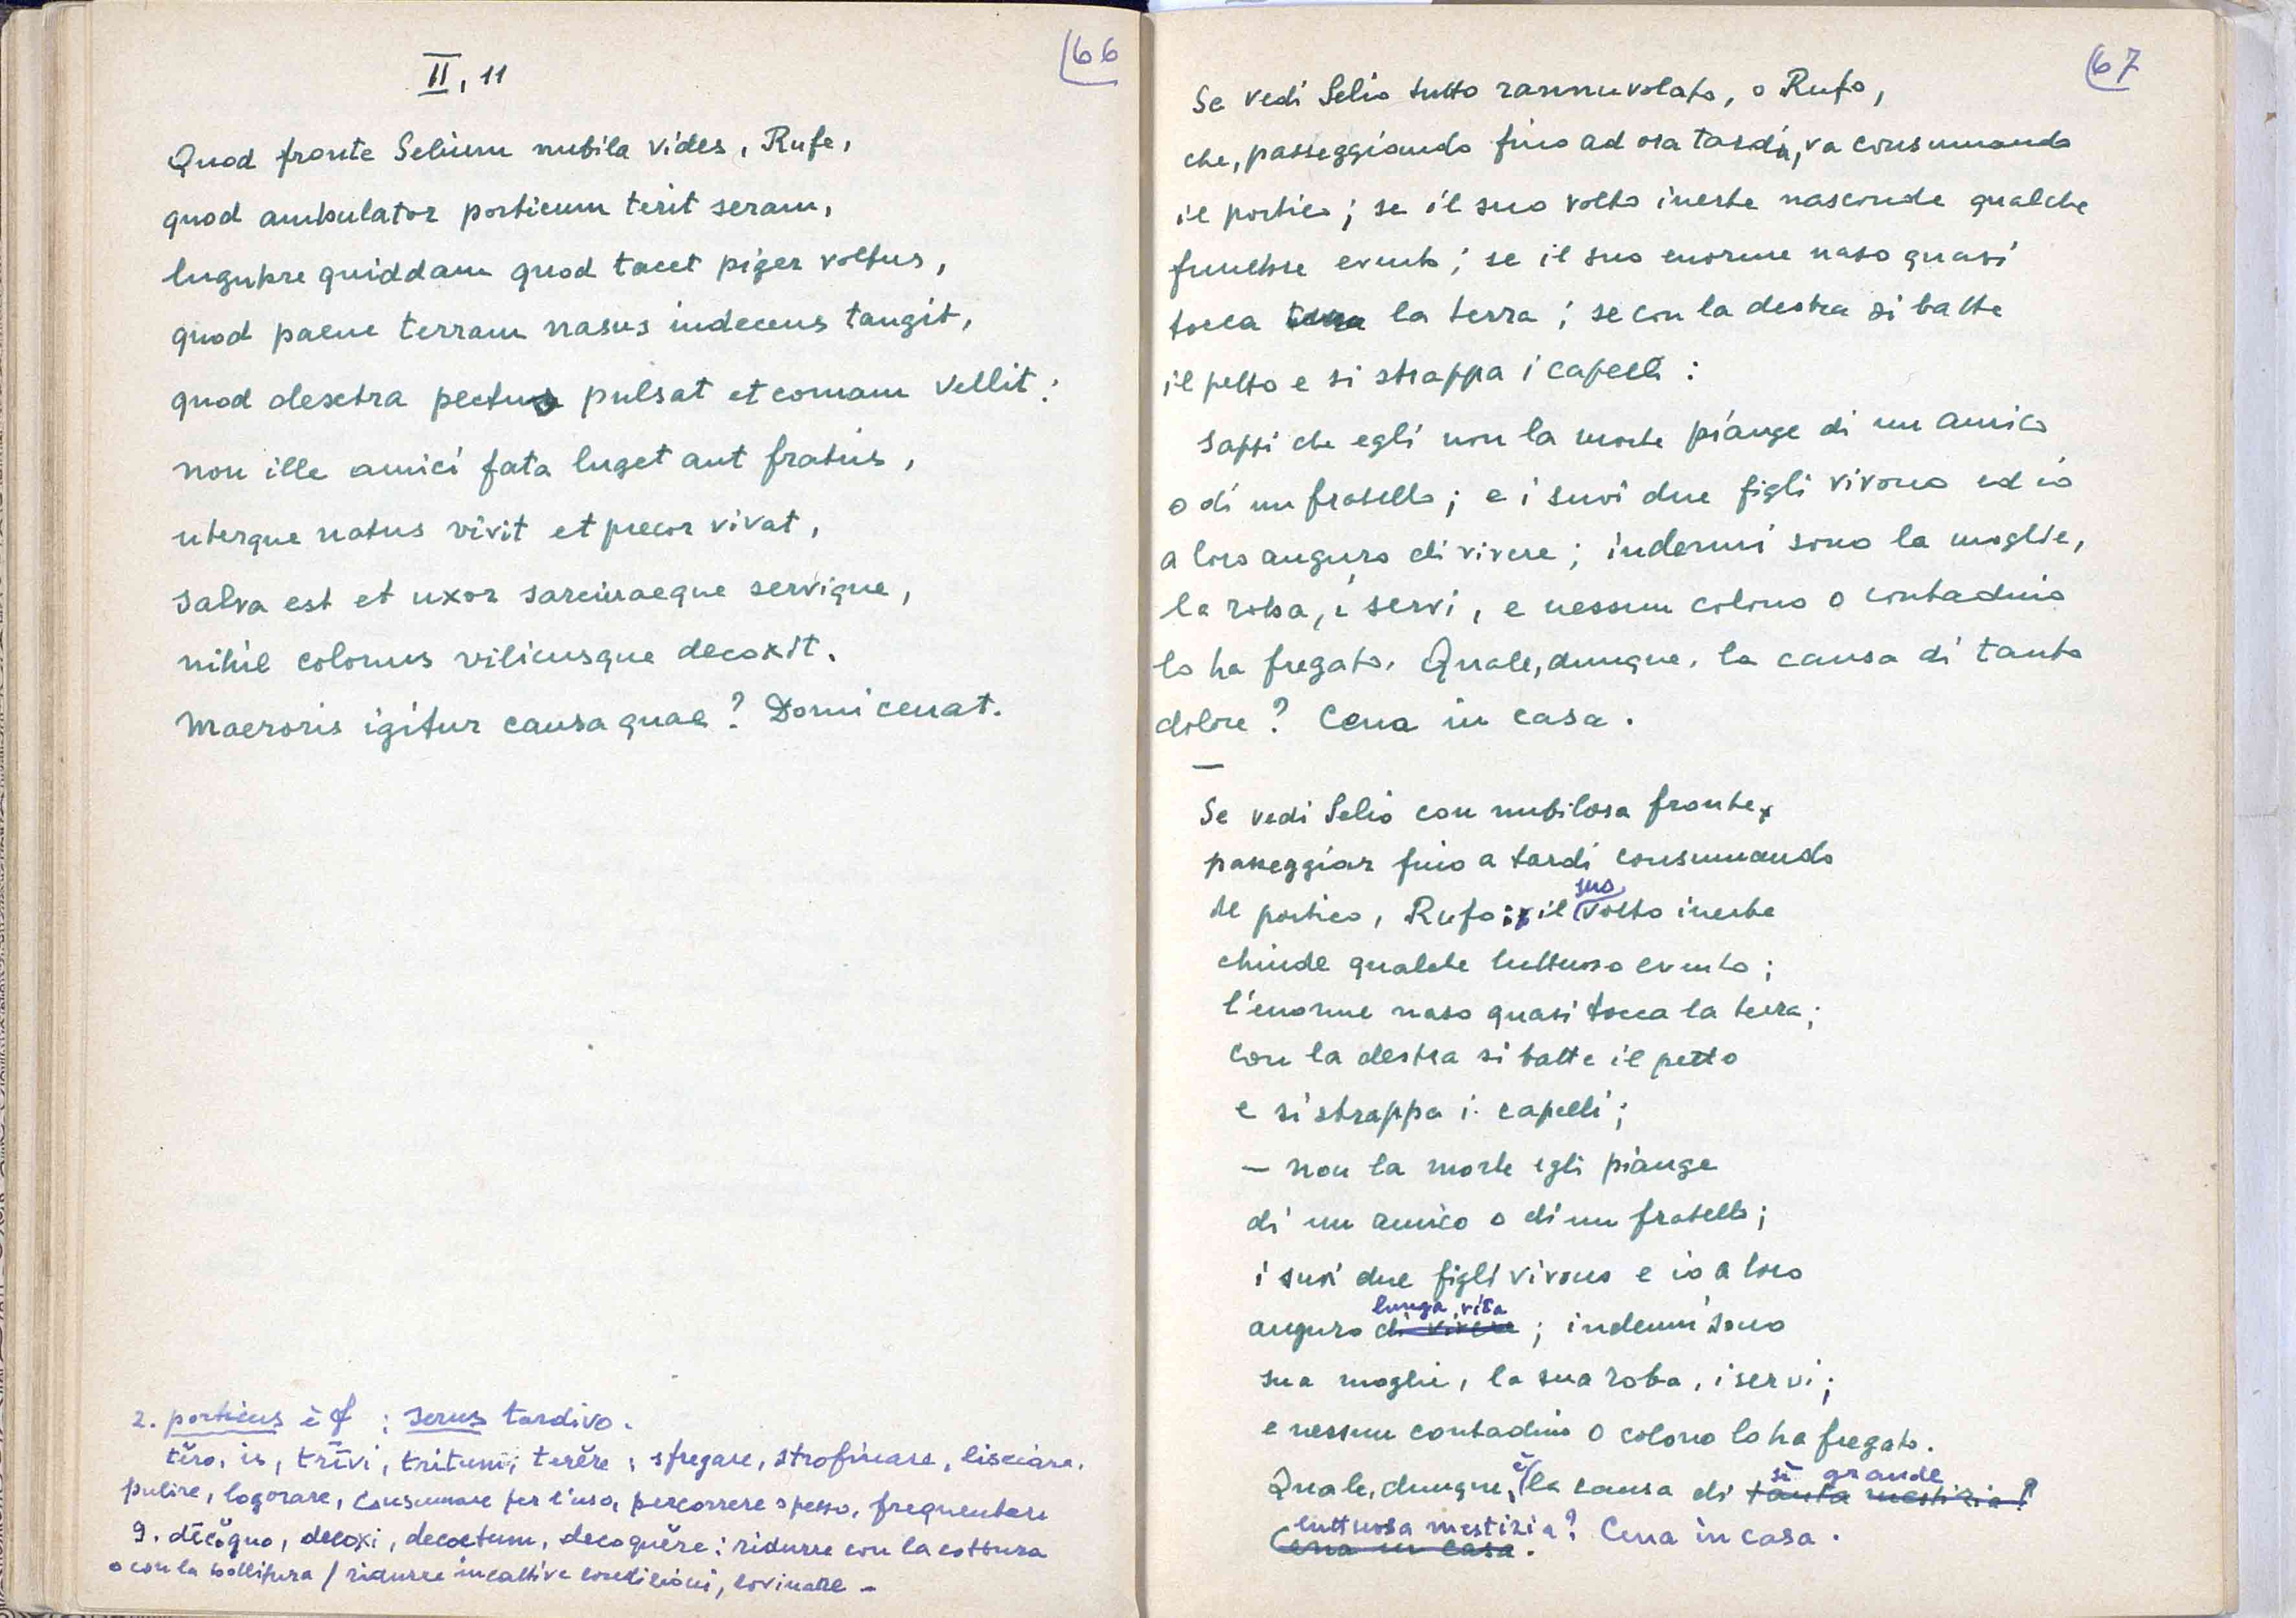 66
II, 11
Quod fronte Selium nubila vides, Rufe,
quod ambulator porticum terit seram,
lugubre quiddam quod tacet piger voltus,
quod paene terram nasus indecens tangit,
quod dextra pectus pulsat et comam vellit:
non ille amici fata luget aut fratris,
uterque natus vivit et precor vivat,
salva est et uxor sarcinaeque servique,
nihil colonus vilicusque decoxit.
Maeroris igitur causa quae? Domi cenat.
2. porticus è f ; serus tardivo.
tĕro, is, trīvi, tritum, terĕre; sfregare, strofinare, lisciare,
pulire, logorare, consumare per l'uso, percorrere spesso, frequentare
9. dēcŏquo, decoxi, decoctum, decoquĕre: ridurre con la cottura
o con la bollitura / ridurre in cattive condizioni, rovinare -
67
Se vedi Selio tutto rannuvolato, o Rufo,
che, passeggiando fino ad ora tarda, va consumando
il portico; se il suo volto inerte nasconde qualche
funebre evento; se il suo enorme naso quasi
tocca terra la terra; se con la destra si batte
il petto e si strappa i capelli:
sappi che egli non la morte piange di un amico
o di un fratello; e i suoi due figli vivono ed io
a loro auguro di vivere; indenni sono la moglie,
la roba, i servi, e nessun colono o contadino
lo ha fregato. Quale, dunque, la causa di tanto
dolore? Cena in casa.
—
Se vedi Selio con nubilosa fronte
passeggiar fino a tardi consumando
il portico, Rufo; il suo volto inerte
chiude qualche luttuoso evento;
l'enorme naso quasi tocca la terra;
con la destra si batte il petto
e si strappa i capelli;
– non la morte egli piange
di un amico o di un fratello;
i suoi due figli vivono e io a loro
auguro di vivere lunga vita; indenni sono
sua moglie, la sua roba, i servi;
e nessun contadino o colono lo ha fregato.
Quale, dunque, è la causa di tanta mestizia? sì grande
luttuosa mestizia? Cena in casa.
Cena in casa.